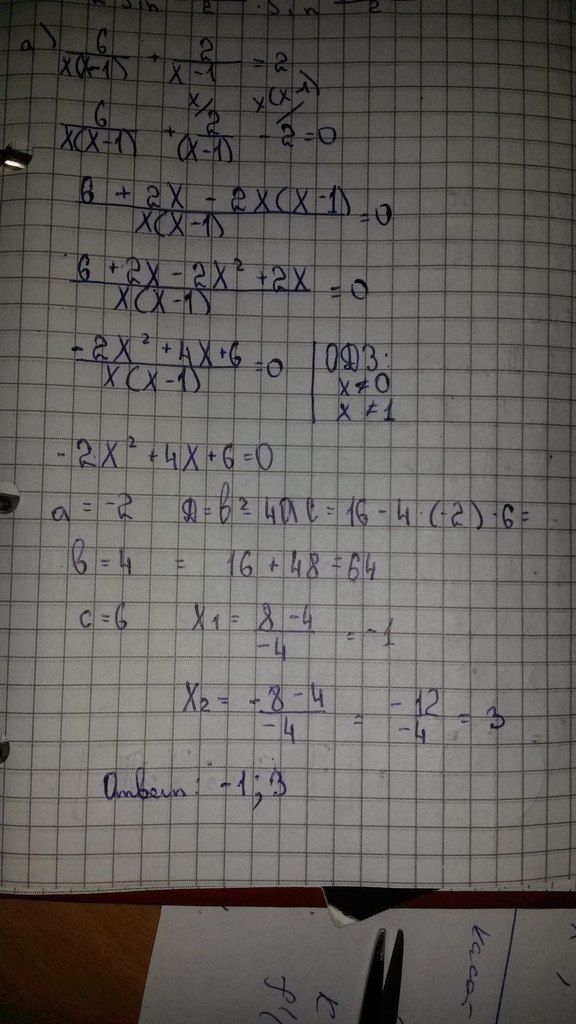 а) 6/x(x-1) + 2/x-1 = 2
6/x(x-1) + x/ 2/(x-1) - x(x-1)/ 2 = 0
6 + 2x - 2x(x-1)/x(x-1) = 0
6 + 2x - 2x² + 2x/x(x-1) = 0
-2x² + 4x + 6/x(x-1) = 0
ОДЗ:
x ≠ 0
x ≠ 1
-2x² + 4x + 6 = 0
a = -2 D = b² - 4ac = 16 - 4·(-2)·6 =
b = 4 = 16 + 48 = 64
c = 6 x1 = 8-4/-4 = -1
x2 = -8-4/-4 = -12/-4 = 3
Ответ: -1; 3